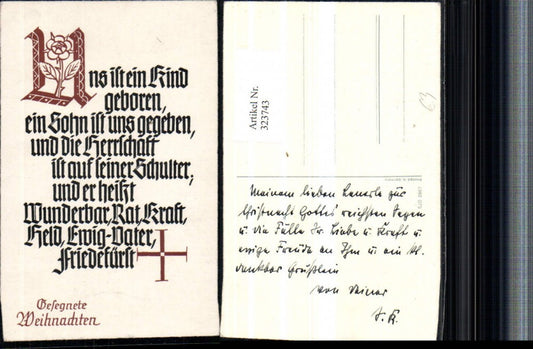 Uns ist ein Kind
geboren,
ein Sohn ist uns gegeben,
und die Herrschaft
ist auf seiner Schulter;
und er heißt
Wunderbar, Rat, Kraft,
Held, Ewig-Vater,
Friedefürst
Gesegnete
Weihnachten
Artikel Nr.
323743
Meinem lieben zur
Christnacht Gottes reichsten Segen
u. die Fülle Sr. Liebe u. Kraft u.
ewige Freude an Ihm u. ein kl.
dankbar Grüßlein
von Deiner